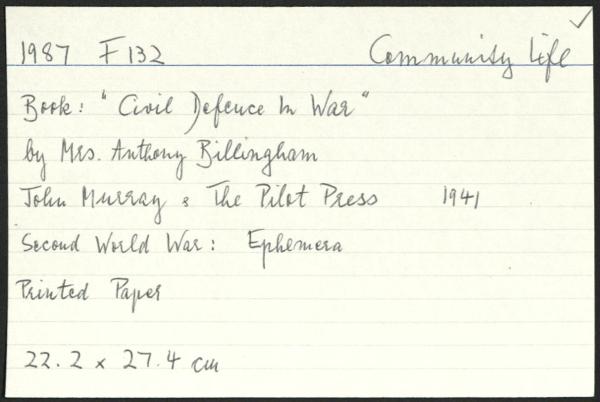 1987 F132 Community Life
Book: "Civil Defence In War"
by Mrs. Anthony Billingham
John Murray & The Pilot Press 1941
Second World War: Ephemera
Printed Paper
22.2 x 27.4 cm